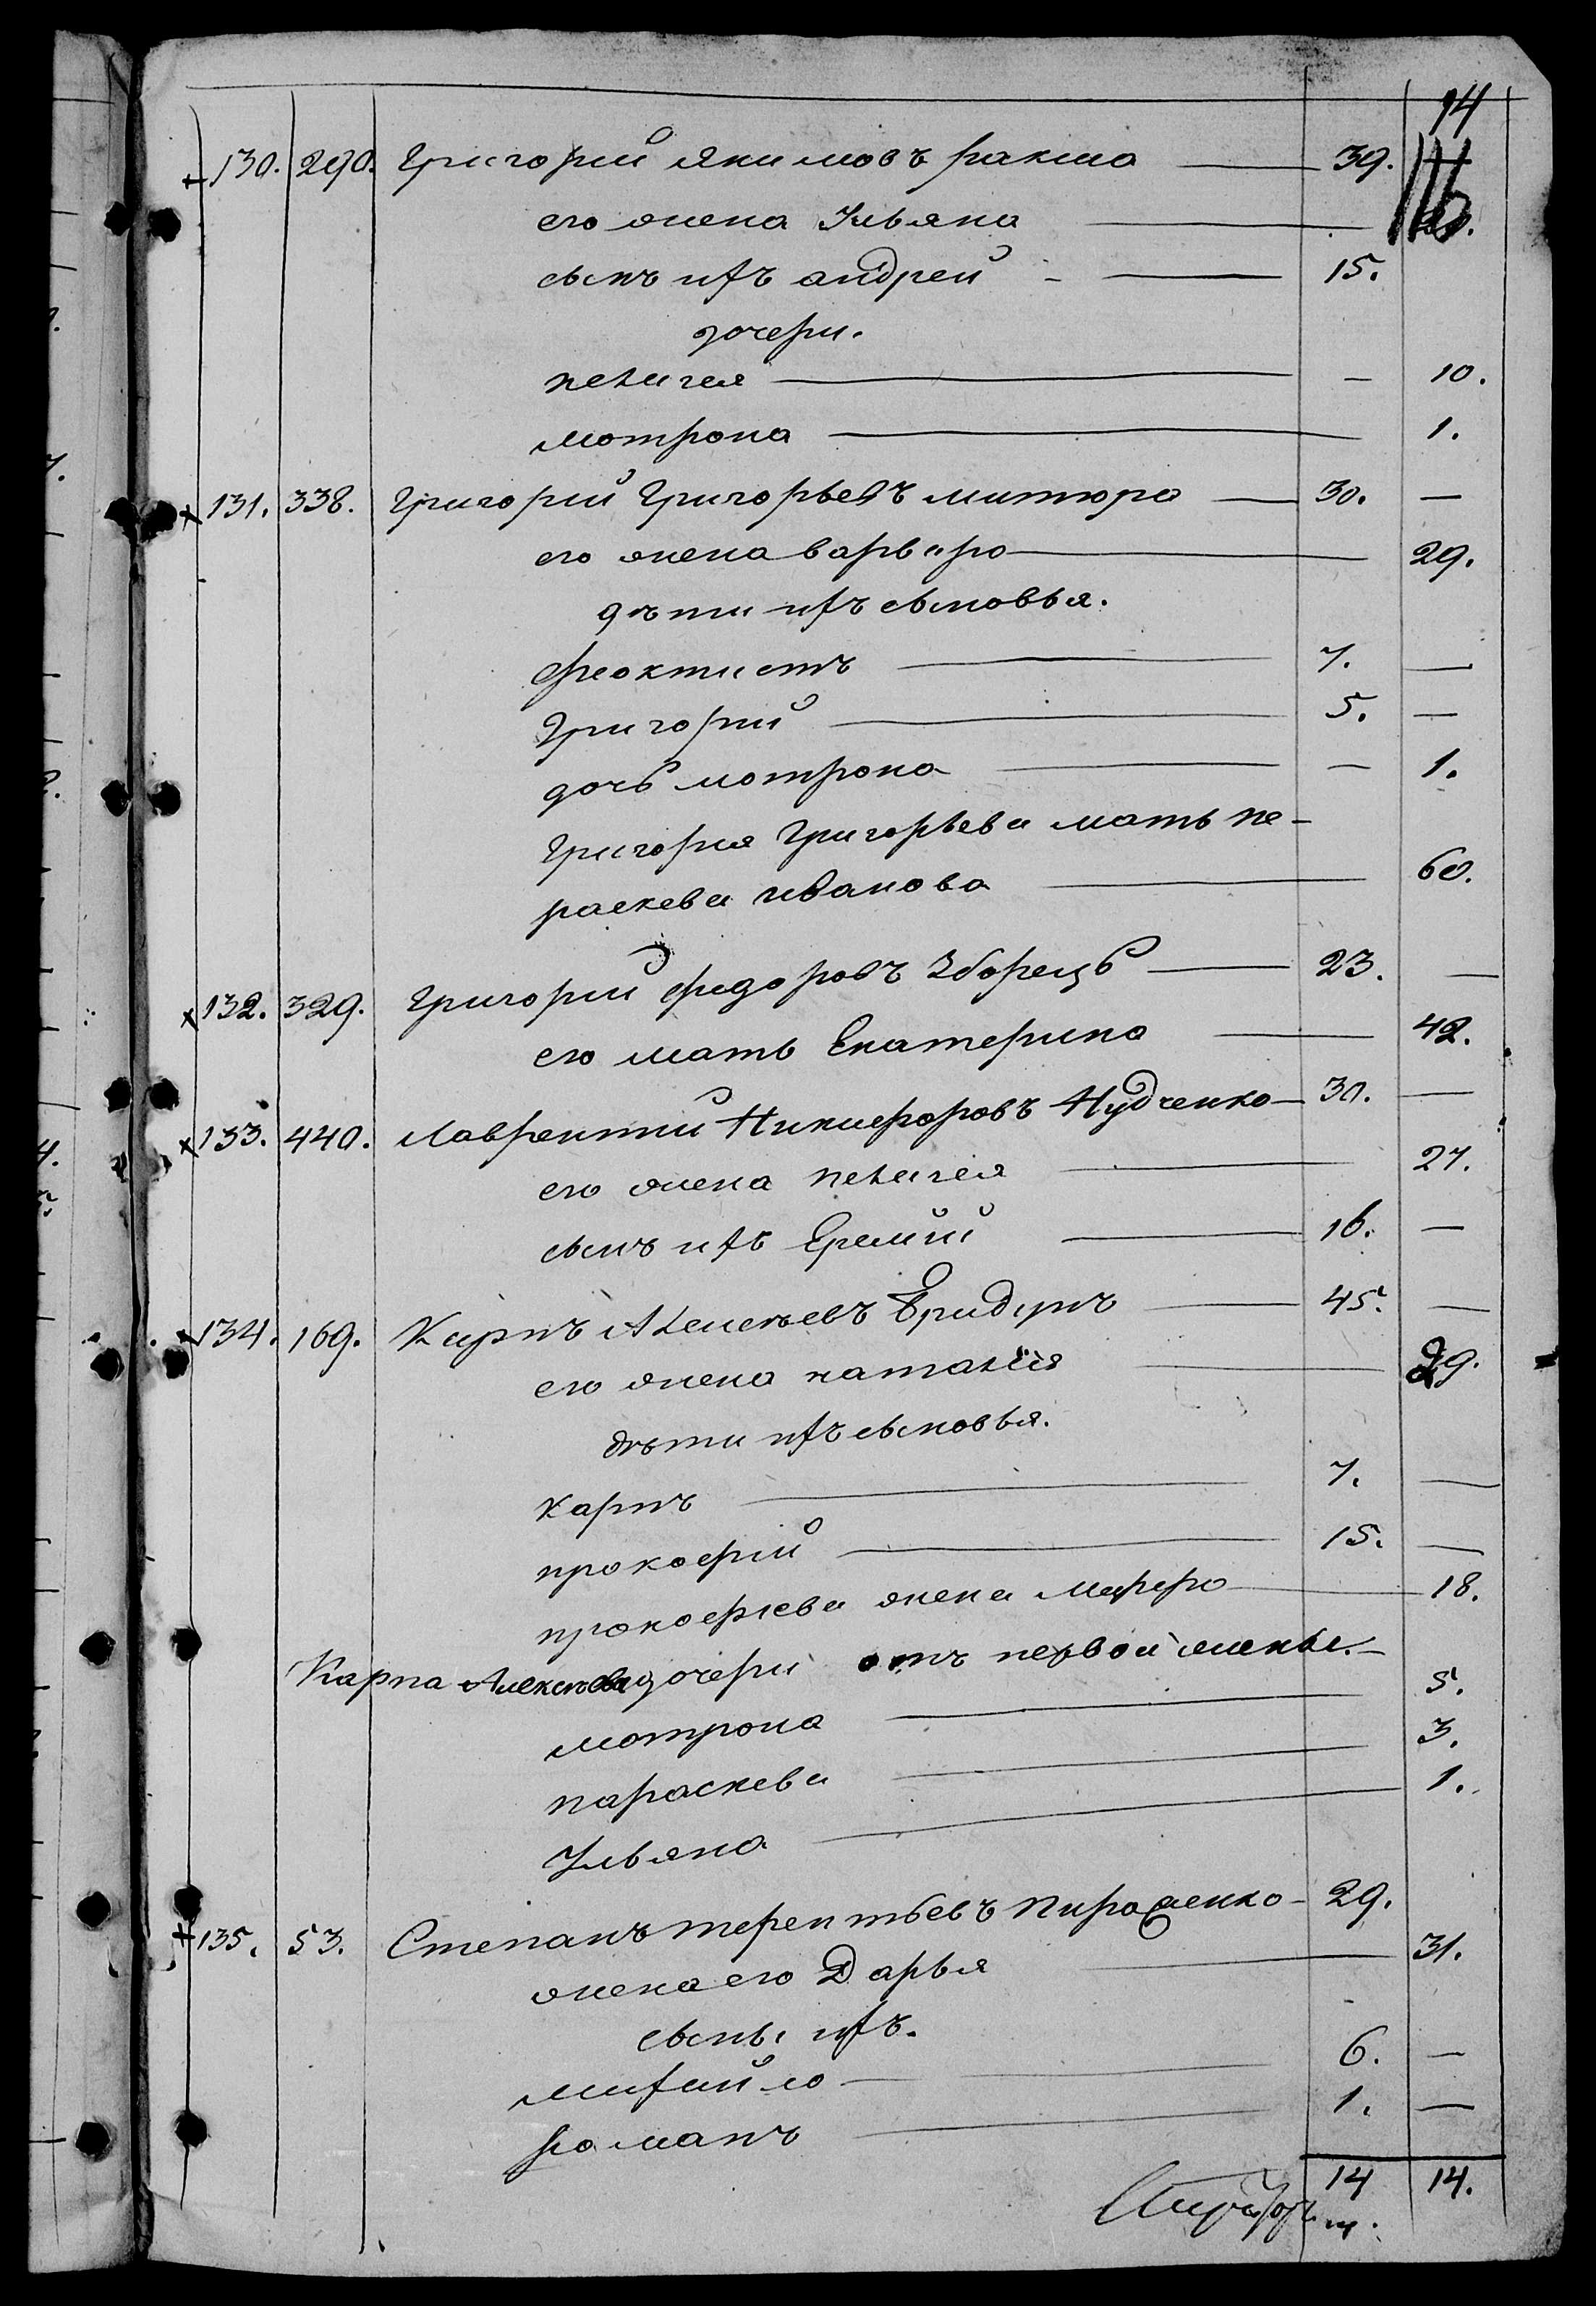 94
130. 290. Григорій Якимовъ ракша 39.
его жена Ульяна
сынъ ихъ андрей - 15.
дочери.
пелагея — 10.
мотрона 1.
131. 338. Григорій Григорьевъ 30. —
его жена варвара 29.
дѣти ихъ сыновья.
феоктистъ 7. —
Григорій 5. —
дочь мотрона — 1.
Григорія Григорьева мать па-
раскева иванова 60.
132. 329. Григорій федоровъ Зборецъ 23. —
его мать Екатерина 42.
133. 440. лаврентій Никифоровъ Нудченко 30. —
его жена пелагея 27.
сынъ ихъ Еремій 16. —
134. 169. Карпъ Алексѣевъ 45. —
его жена наталія 29.
дѣти ихъ сыновья.
карпъ 7. —
прокофій 15. —
прокофіева жена марфа 18.
Карпа Алексѣева дочери отъ первой жены.
мотрона 5.
параскева 3.
Ульяна 1.
135. 53. Степанъ терентьевъ 29.
жена его Дарья 31.
сыны ихъ.
михайло 6. —
романъ 1. —
14 14.